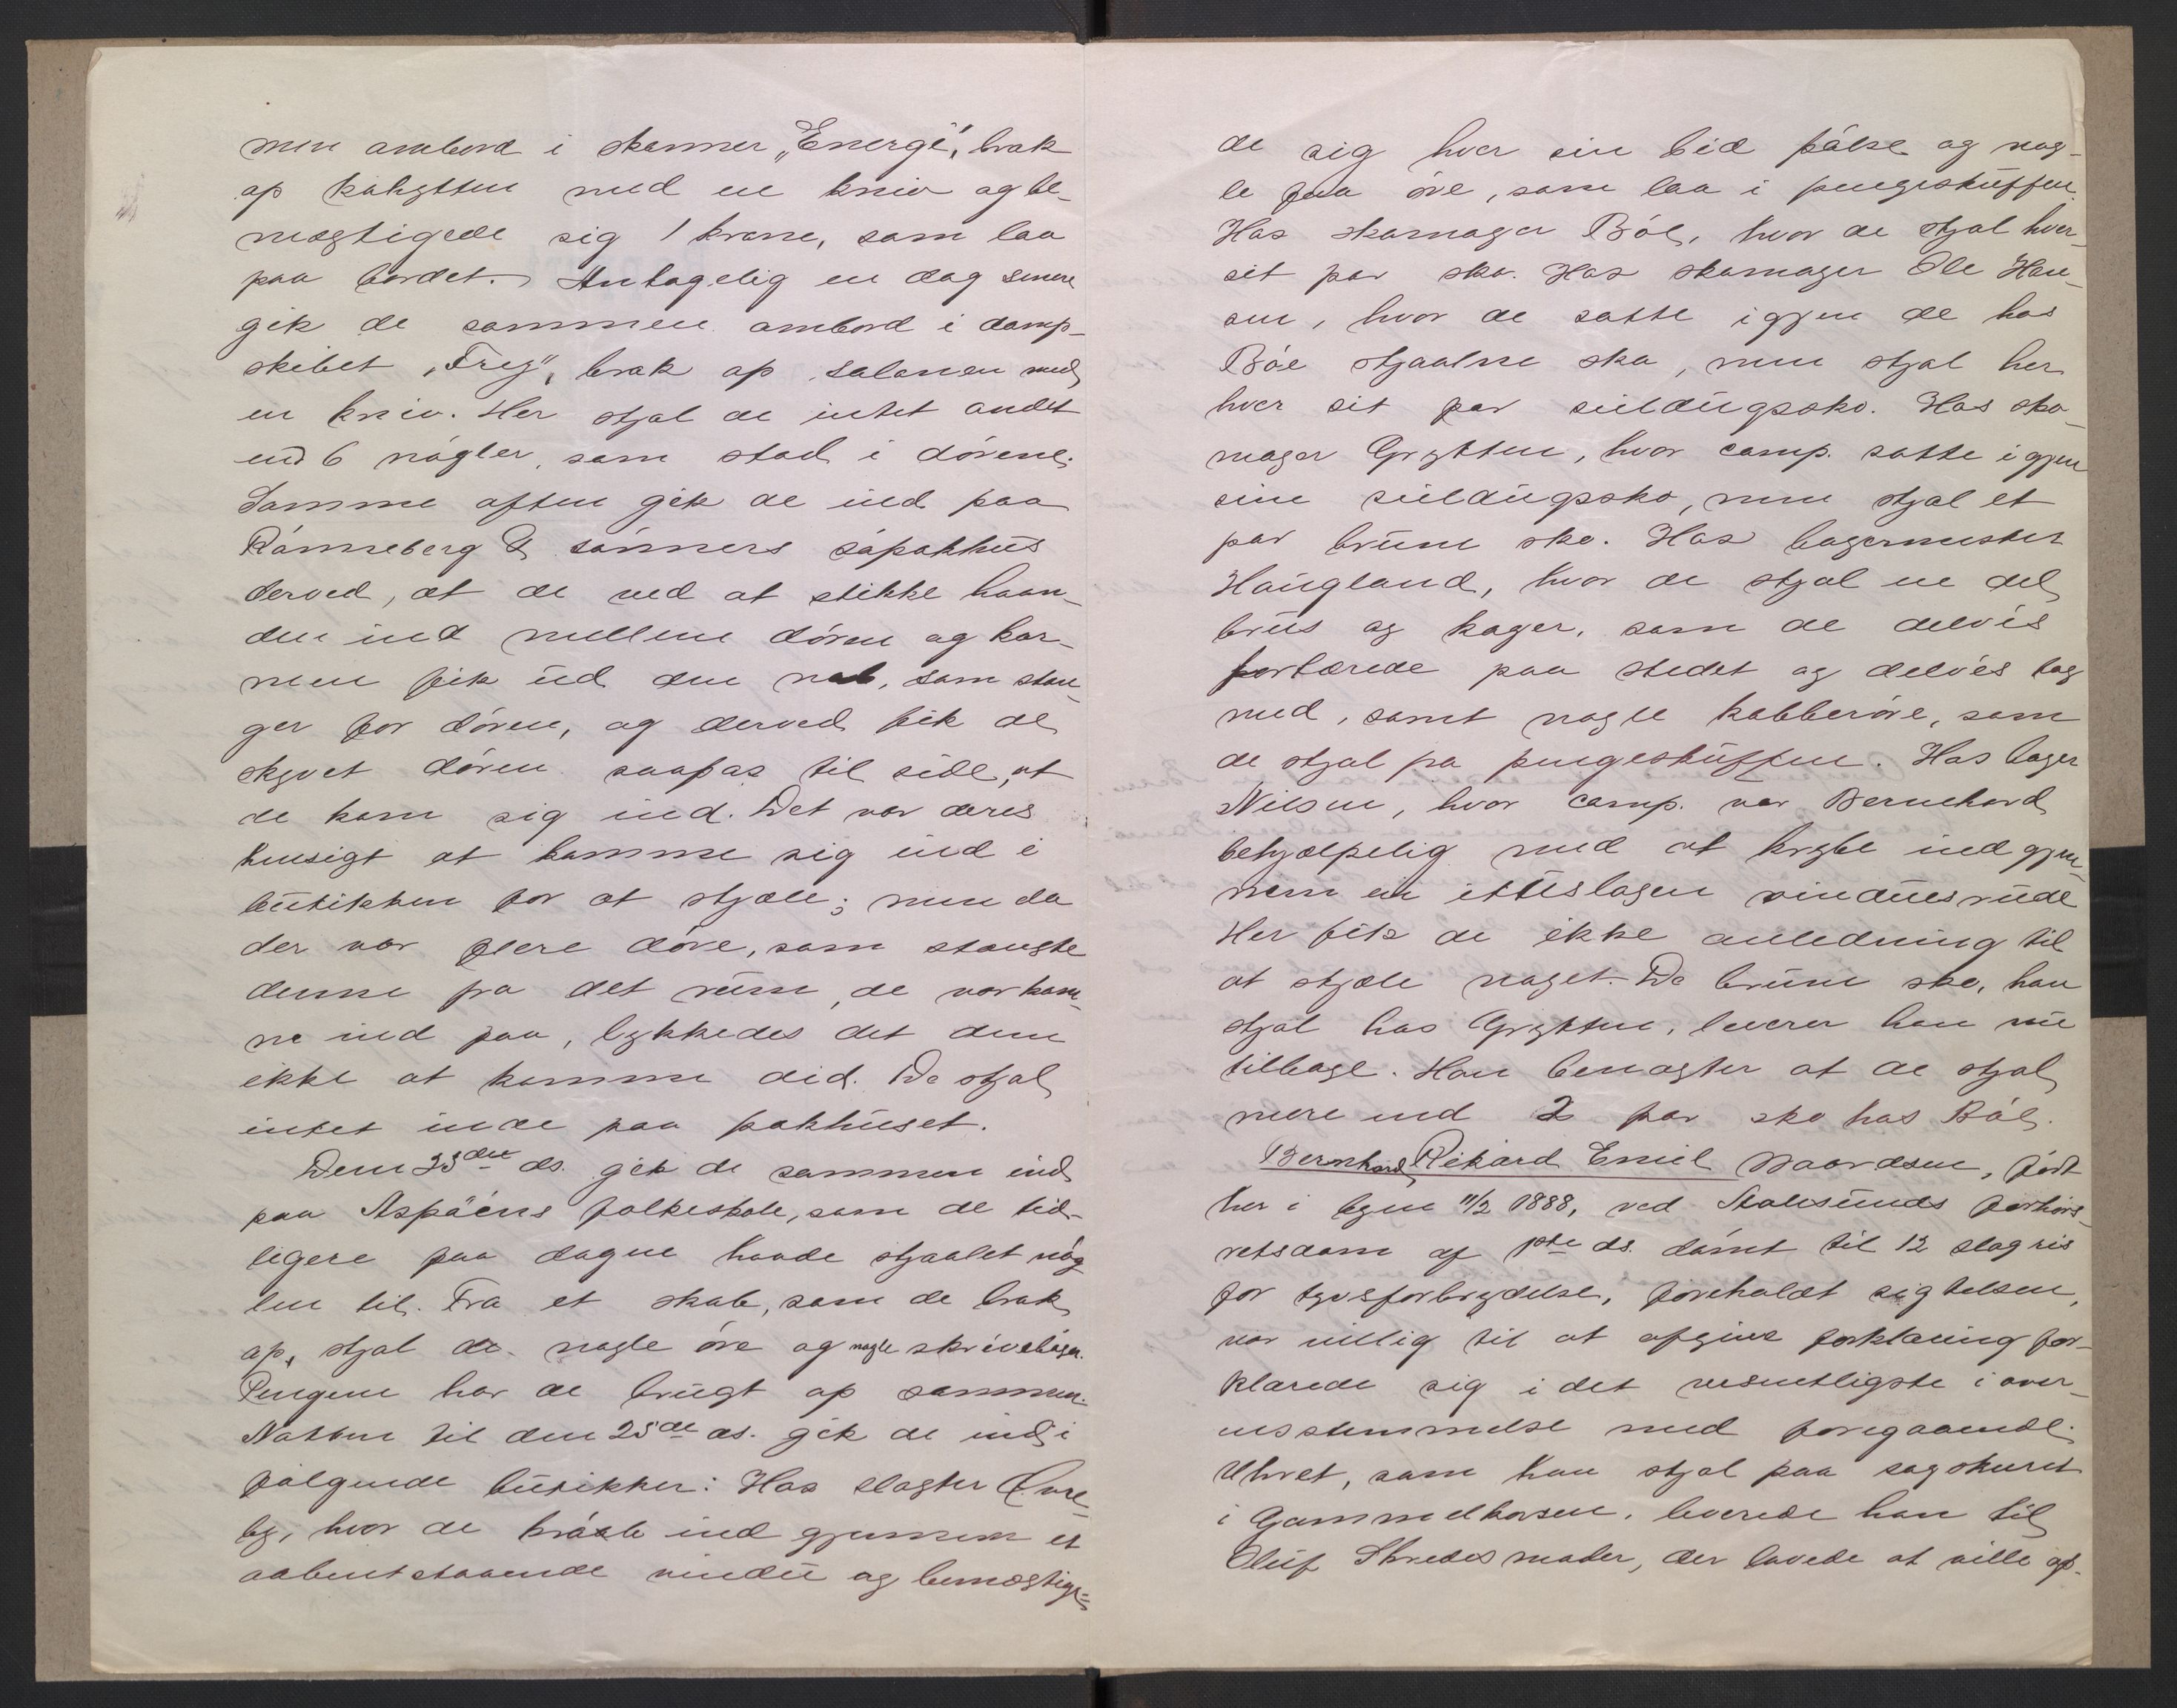 men ombord i skonner „Energi", brak
op kahytten med en kniv og be-
mægtigede sig 1 krone, som laa
paa bordet. Antagelig en dag senere
gik de sammen ombord i damp-
skibet „Frey", brak op salonen med
en kniv. Her stjal de intet andet
end 6 nøgler, som stod i dørene.
Samme aften gik de ind paa
Rönneberg & sønners søpakhus
derved, at de ved at stikke haan-
den ind mellem døren og kar-
men fik ud den nab, som stæn-
ger for døren, og derved fik de
skjøvet døren saapas til side, at
de kom sig ind. Det var deres
hensigt at komme sig ind i
butikken for at stjæle; men da
der var flere døre, som stængte
denne fra det rum, de var kom-
ne ind paa, lykkedes det dem
ikke at komme did. De stjal
intet inde paa pakhuset.
Den 23de ds. gik de sammen ind
paa Aspøens folkeskole, som de tid-
ligere paa dagen havde stjaalet nøg-
len til. Fra et skab, som de brak
op, stjal de nogle øre og nogle skrivebøger.
Pengene har de brugt op sammen.
Natten til den 25de ds. gik de ind i
følgende butikker: Hos slagter
hvor de krøb ind gjennem et
aabentstaaende vindu og bemægtige-
de sig hver sin bid pølse og nog-
le faa øre, som laa i pengeskuffen.
Hos skomager Bøe, hvor de stjal hver
sit par sko. Hos skomager Ole Han-
sen, hvor de satte igjen de hos
Bøe stjaalne sko, men stjal her
hver sit par seildugssko. Hos sko-
mager Grytten, hvor comp. satte igjen
sine seildugssko, men stjal et
par brune sko. Hos bagermester
Haugland, hvor de stjal en del
brus og kager, som de delvis
fortærede paa stedet og delvis tog
med, samt nogle kobberøre, som
de stjal fra pengeskuffen. Hos bager
Nilsen, hvor comp. var Bernhard
behjælpelig med at krybe ind gjen-
nem en ituslagen vinduesrude
Her fik de ikke anledning til
at stjæle noget. De brune sko, han
stjal hos Grytten, leverer han nu
tilbage. Han benægter at de stjal
mere end 2 par sko hos Bøe.
Bernhard Rikard Emil Baardsen, født
her i byen 11/2 1888, ved Aalesunds forhørs-
retsdom af 1ste ds. dømt til 12 slag ris
for tyvsforbrydelse, foreholdt sigtelsen,
var villig til at afgive forklaring for-
klarede sig i det væsentligste i over-
ensstemmelse med foregaaende.
Uhret, som han stjal paa sagskuret
i leverede han til
Oluf Skredes moder, der lovede at ville op-